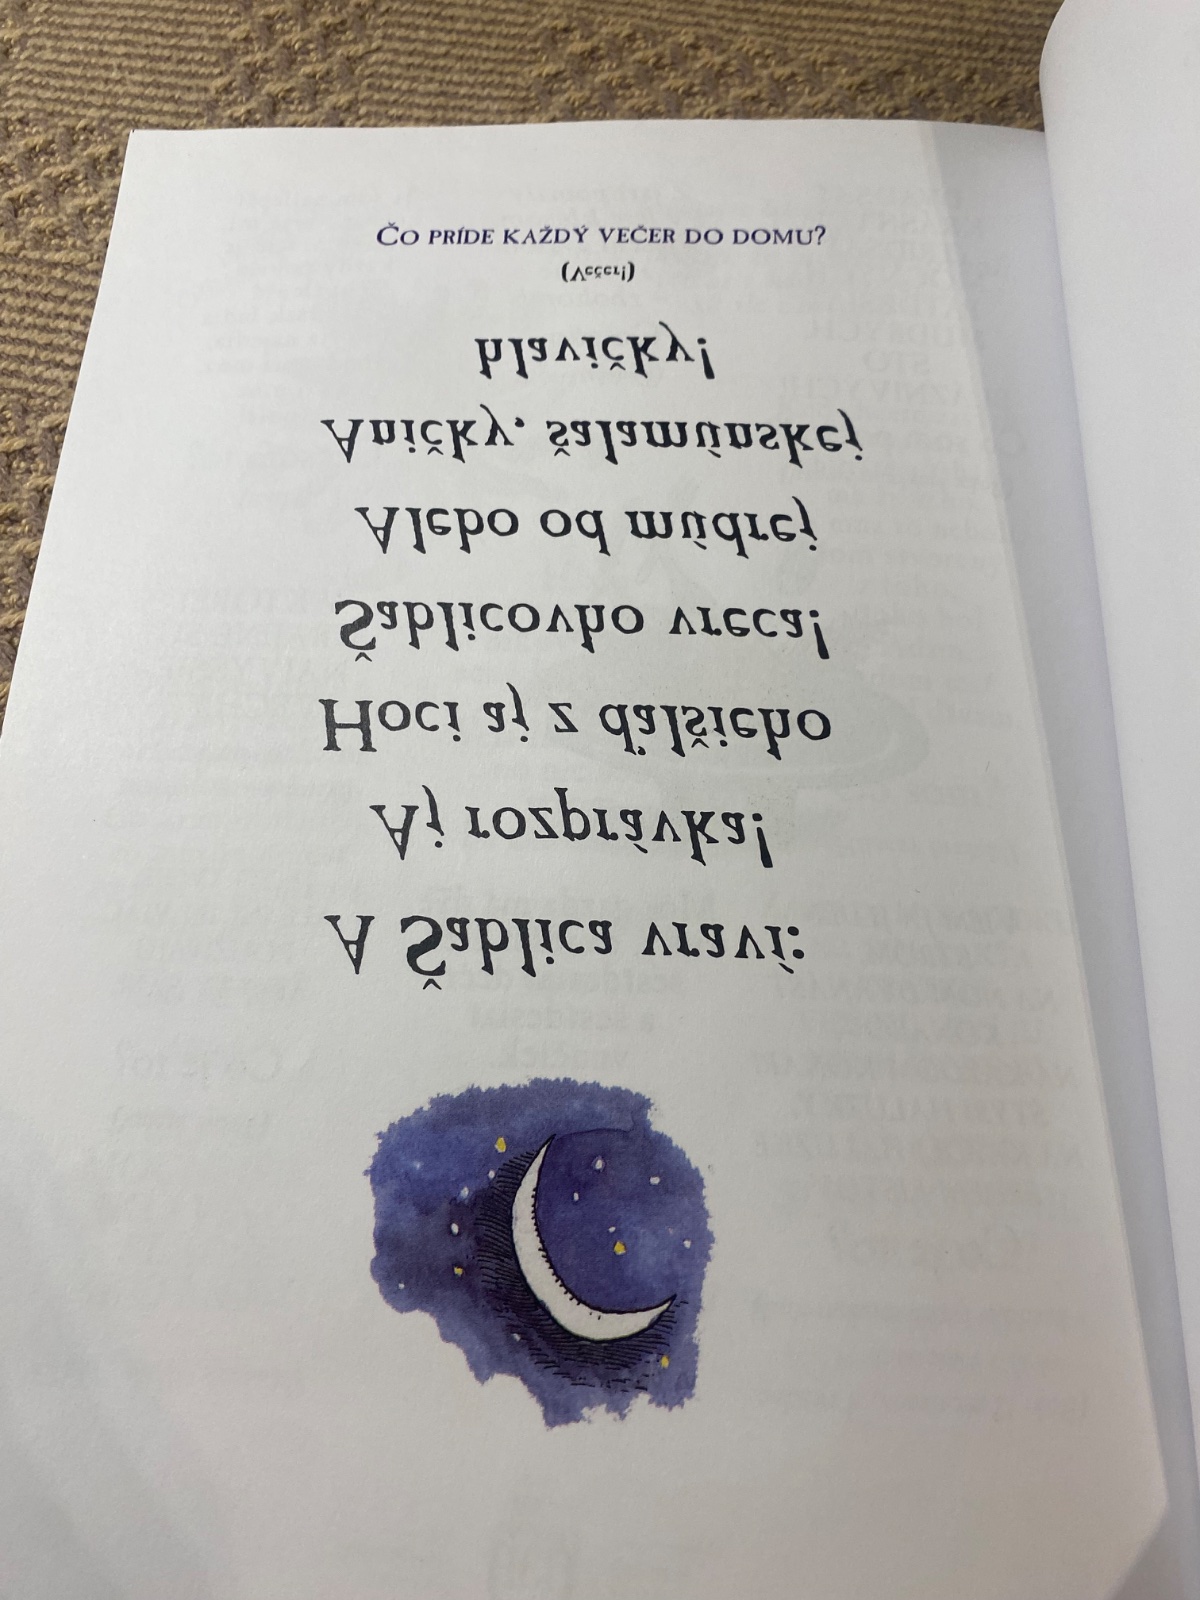 ČO PRÍDE KAŽDÝ VEČER DO DOMU?
(Večer!)
A Šablica vraví:
Aj rozprávka!
Hoci aj z ďalšieho
Šablicovho vreca!
Alebo od múdrej
Aničky, šalamúnskej
hlavičky!